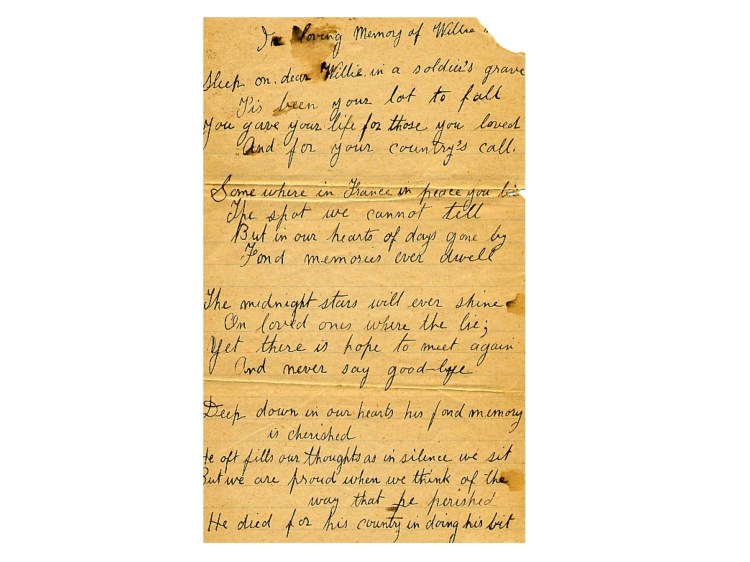 In loving Memory of Willie
Sleep on. dear Willie. in a soldier's grave
Tis been your lot to fall
You gave your life for those you loved
And for your country's call.
Some where in France in peace you lie
The spot we cannot till
But in our hearts of days gone by
Fond memories ever dwell
The midnight stars will ever shine
On loved ones where the lie;
Yet there is hope to meet again
And never say good-bye
Deep down in our hearts his fond memory
is cherished
He oft fills our thoughts as in silence we sit
But we are proud when we think of the
way that he perished
He died for his country in doing his bit